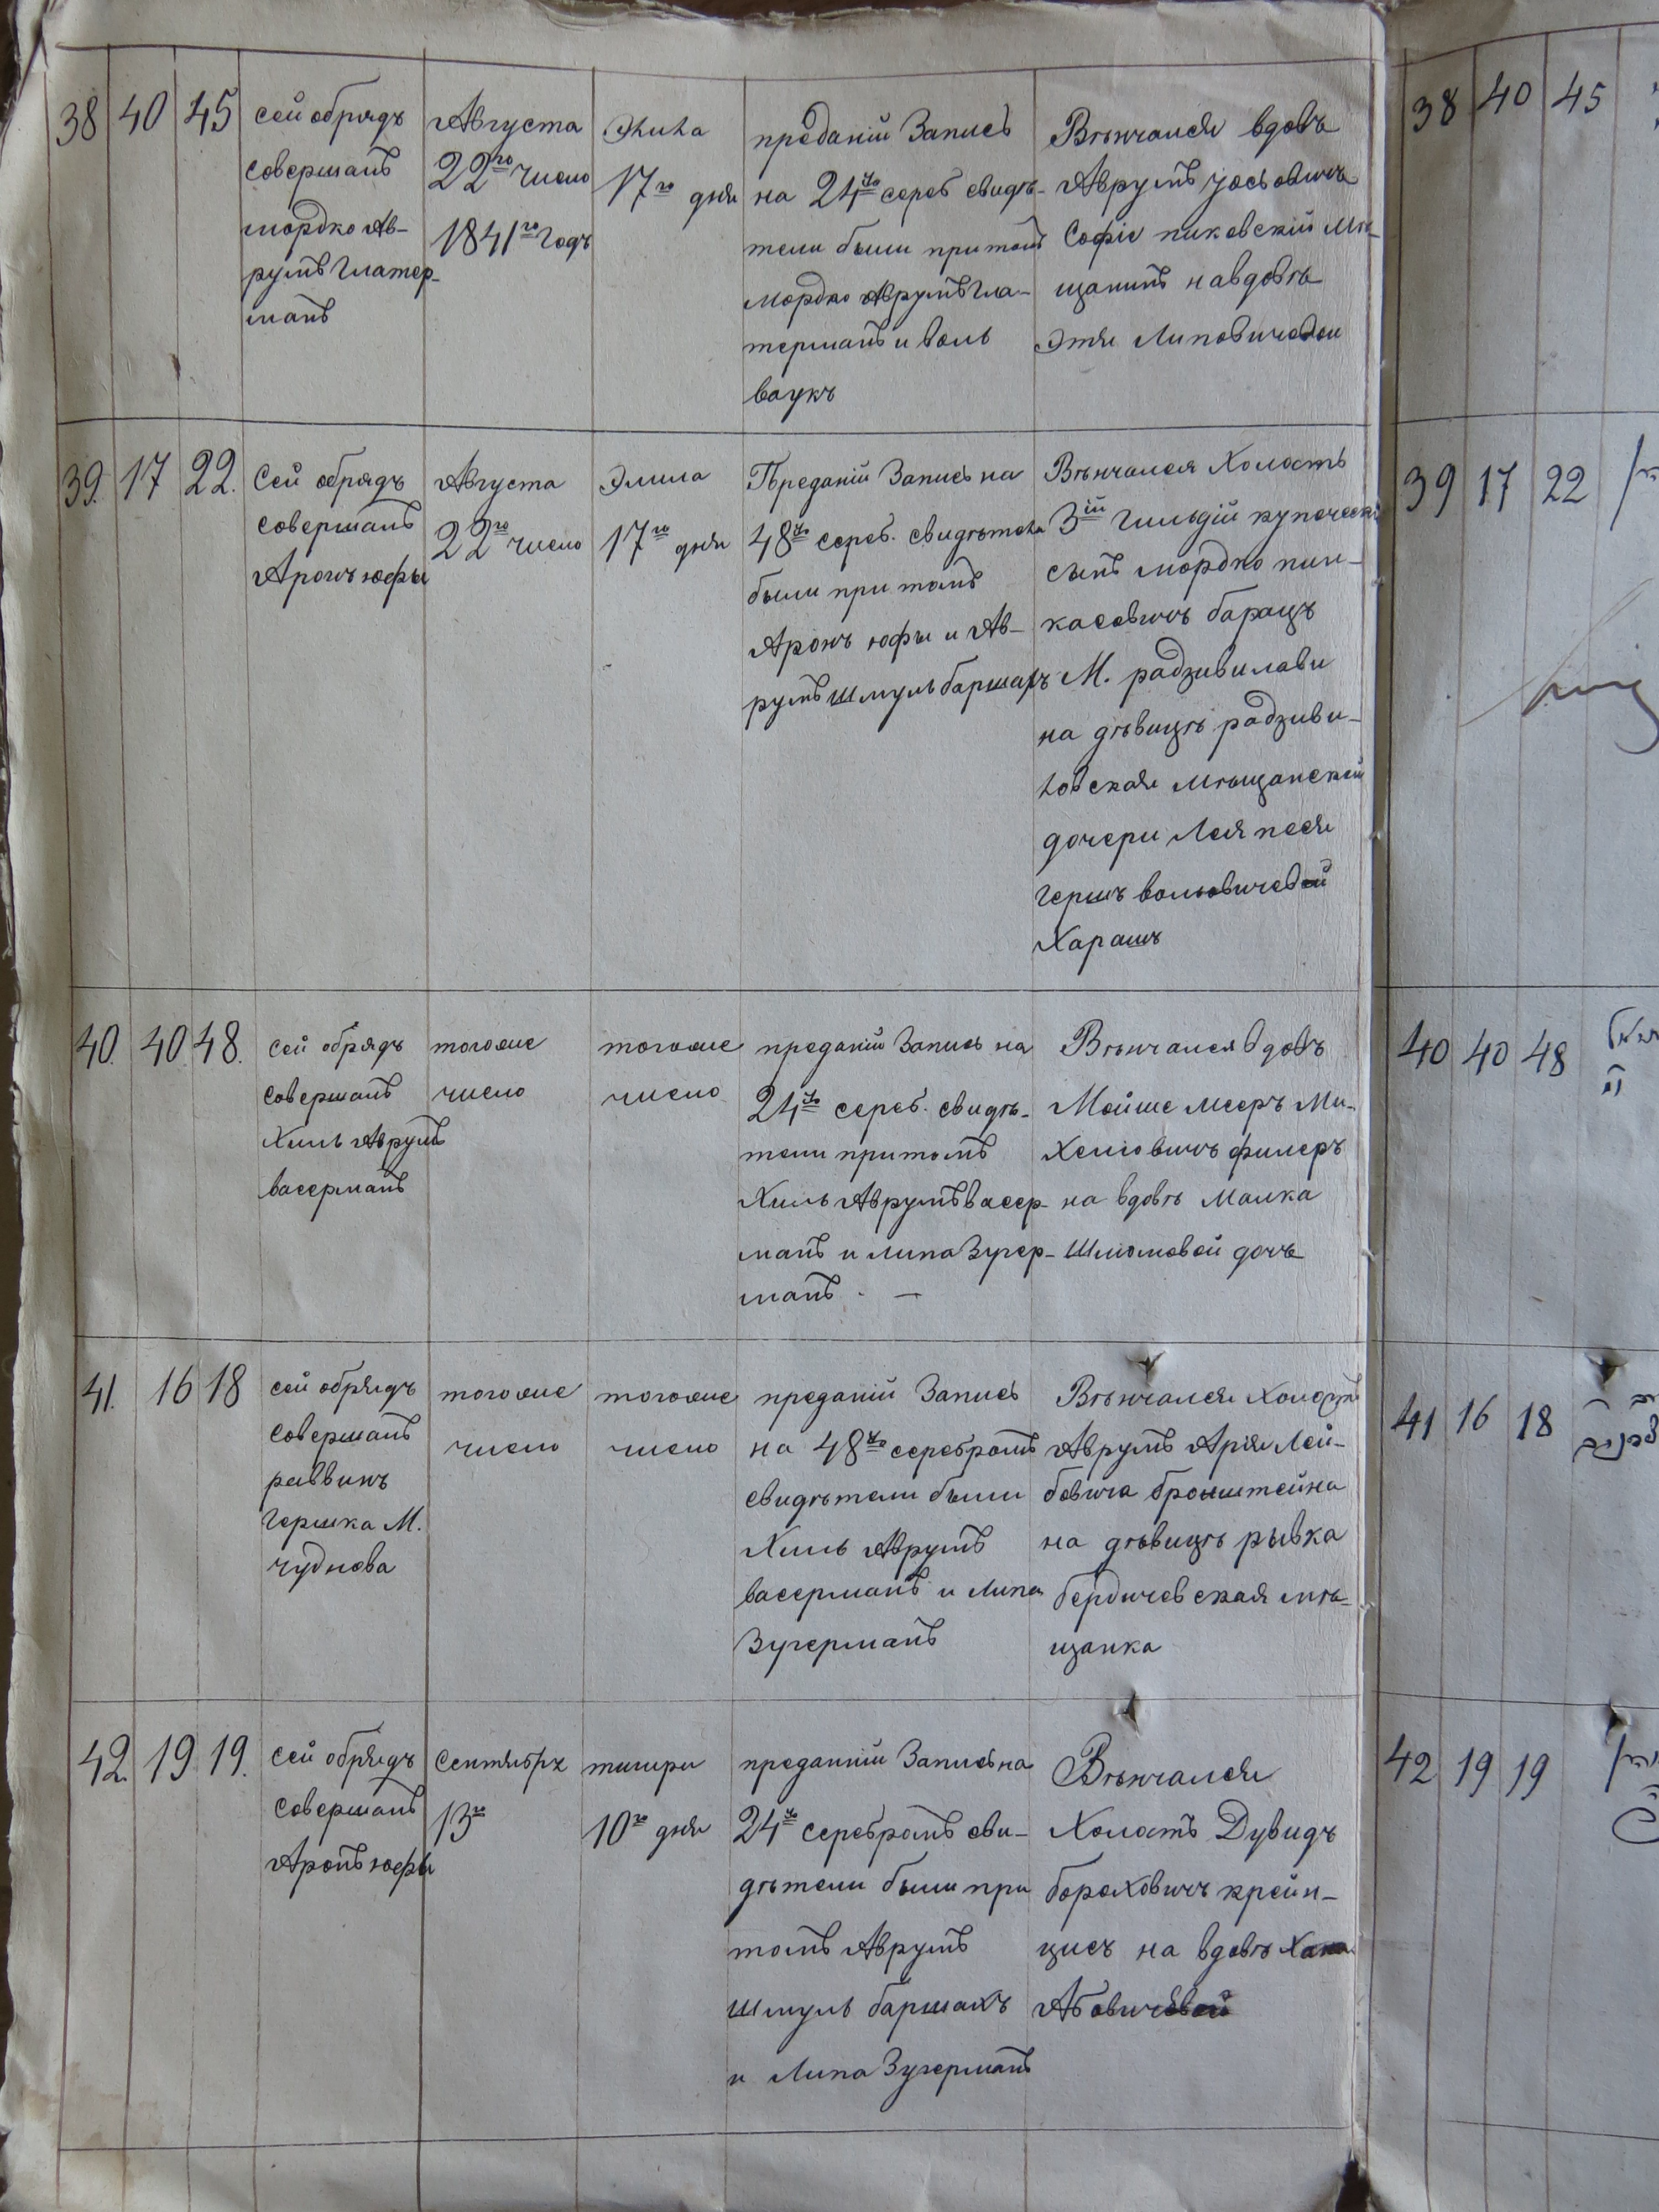 38 40 45
сей обрядъ
совершалъ
мордко Ав-
румъ Глатер-
манъ
Августа
22го число
1841го Годъ
Элила
17го дня
преданій Запись
на 24ро сереб свидѣ-
тели были притомъ
мордко Аврумъ Гла-
терманъ и воль
ваукъ
Вѣнчался вдовъ
Аврумъ Іосьовичъ
Софіе пиковскій мѣ-
щанинъ на вдовѣ
Этя Липовичевои
39. 17 22.
Сей обрядъ
совершалъ
Аронъ юфы
Августа
22го число
Элила
17го дня
Преданій Запись на
48ро сереб. свидѣтели
были при томъ
Аронъ юфы и Ав-
румъ Шмуль баршахъ
Вѣнчался Холостъ
3ій Гильдій купеческій
сынъ мордко пин-
касовичъ барацъ
М. радзивилави
на дѣвицѣ радзиви-
ловская мѣщанскій
дочери Лея песя
Гершъ вольовичевой
Харашъ
40. 40 48.
сей обрядъ
совершалъ
Хиль Аврумъ
васерманъ
тогоже
число
тогоже
число
преданій Запись на
24ро сереб. свидѣ-
тели притомъ
Хиль Аврумъ васер-
манъ и липа Зугер-
манъ . —
Вѣнчался вдовъ
Мойше мееръ Ми-
хелиовичъ филеръ
на вдовѣ Малка
Шмомовой дочь
41. 16 18
сей обрядъ
совершалъ
раввинъ
Гершка М.
чуднова
тогоже
число
тогоже
число
преданій Запись
на 48ро серебромъ
свидѣтели были
Хиль Аврумъ
васерманъ и Липа
Зугерманъ
Вѣнчался Холостъ
Аврумъ Аріи Лей-
бовича бронштейна
на дѣвицѣ рывка
бердичевская мѣ-
щанка
42. 19 19.
сей обрядъ
совершалъ
Аронъ юфы
Сентябрѣ
13го
тишри
10го дня
преданій Запись на
24ро серебромъ сви-
дѣтели были при
томъ Аврумъ
Шмуль баршахъ
и Липа Зугерманъ
Вѣнчался
Холостъ Дувидъ
бороховичъ крейн-
цисъ на вдовѣ Хана
Абовичевой
38 40 45
39 17 22
40 40 48
41 16 18
42 19 19